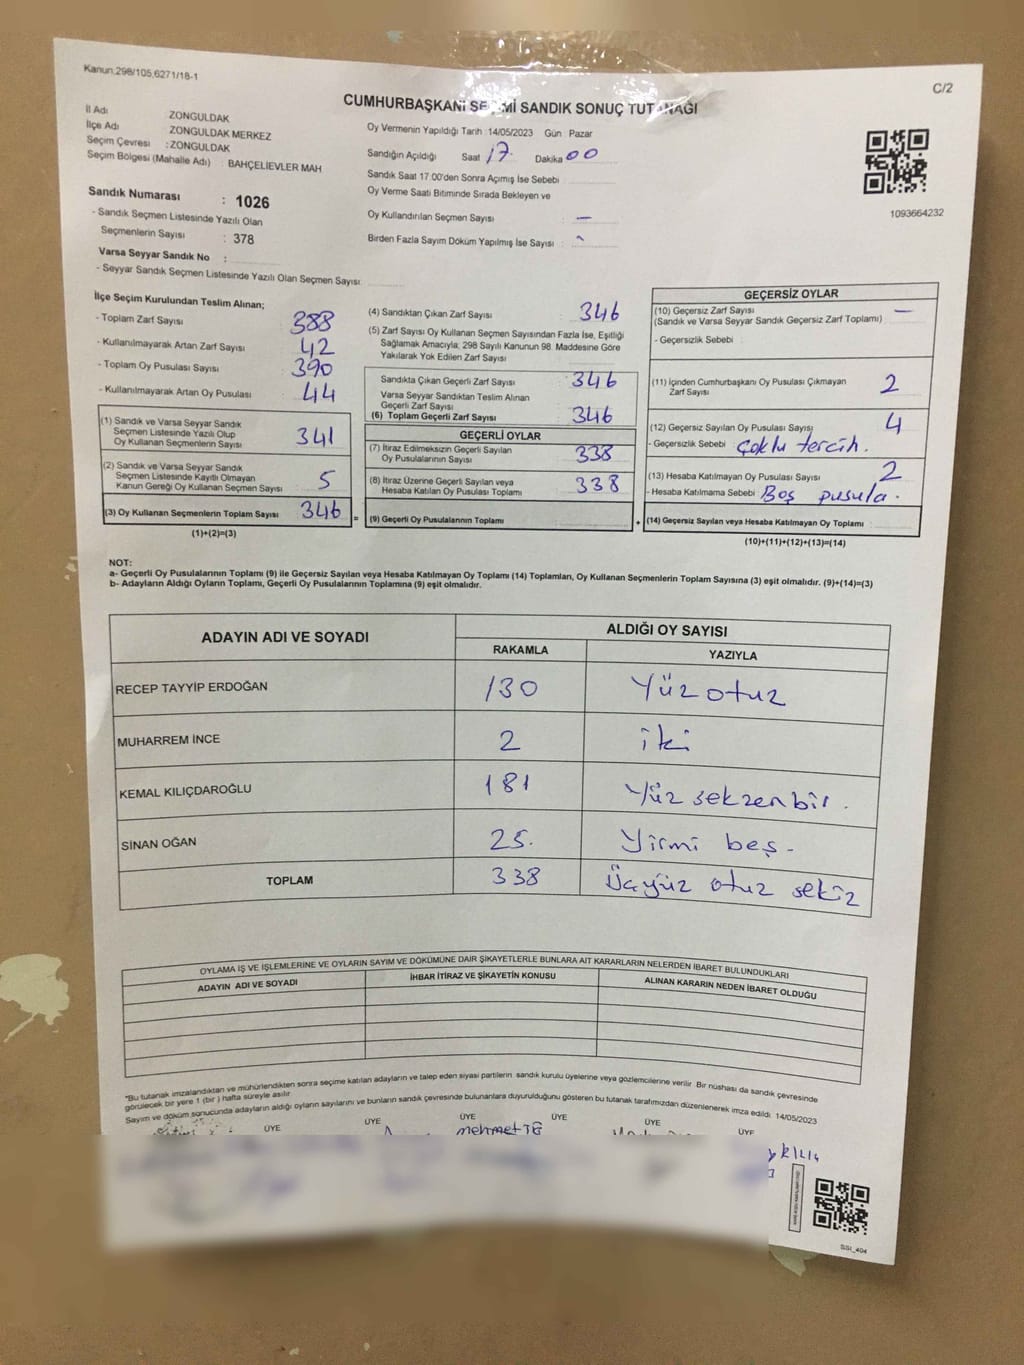 Kanun.298/105,6271/18-1
C/2
CUMHURBAŞKANI SEÇİMİ SANDIK SONUÇ TUTANAĞI
İl Adı ZONGULDAK
İlçe Adı ZONGULDAK MERKEZ
Seçim Çevresi : ZONGULDAK
Seçim Bölgesi (Mahalle Adı) : BAHÇELİEVLER MAH
Sandık Numarası : 1026
- Sandık Seçmen Listesinde Yazılı Olan
Seçmenlerin Sayısı : 378
Varsa Seyyar Sandık No :
- Seyyar Sandık Seçmen Listesinde Yazılı Olan Seçmen Sayısı
Oy Vermenin Yapıldığı Tarih :14/05/2023 Gün Pazar
Sandığın Açıldığı Saat 17 Dakika 00
Sandık Saat 17.00'den Sonra Açımış İse Sebebi
Oy Verme Saati Bitiminde Sırada Bekleyen ve
Oy Kullandırılan Seçmen Sayısı : —
Birden Fazla Sayım Döküm Yapılmış İse Sayısı
1093664232
İlçe Seçim Kurulundan Teslim Alınan;
- Toplam Zarf Sayısı 388
- Kullanılmayarak Artan Zarf Sayısı 42
- Toplam Oy Pusulası Sayısı 390
- Kullanılmayarak Artan Oy Pusulası 44
(1) Sandık ve Varsa Seyyar Sandık
Seçmen Listesinde Yazılı Olup
Oy Kullanan Seçmenlerin Sayısı 341
(2) Sandık ve Varsa Seyyar Sandık
Seçmen Listesinde Kayıtlı Olmayan
Kanun Gereği Oy Kullanan Seçmen Sayısı 5
(3) Oy Kullanan Seçmenlerin Toplam Sayısı 346 =
(1)+(2)=(3)
(4) Sandıktan Çıkan Zarf Sayısı : 346
(5) Zarf Sayısı Oy Kullanan Seçmen Sayısından Fazla İse, Eşitliği
Sağlamak Amacıyla; 298 Sayılı Kanunun 98. Maddesine Göre
Yakılarak Yok Edilen Zarf Sayısı
Sandıkta Çıkan Geçerli Zarf Sayısı : 346
Varsa Seyyar Sandıktan Teslim Alınan
Geçerli Zarf Sayısı
(6) Toplam Geçerli Zarf Sayısı 346
GEÇERLİ OYLAR
(7) İtiraz Edilmeksizin Geçerli Sayılan
Oy Pusulalarının Sayısı 338
(8) İtiraz Üzerine Geçerli Sayılan veya
Hesaba Katılan Oy Pusulası Toplamı 338
(9) Geçerli Oy Pusulalarının Toplamı +
GEÇERSİZ OYLAR
(10) Geçersiz Zarf Sayısı —
(Sandık ve Varsa Seyyar Sandık Geçersiz Zarf Toplamı)
- Geçersizlik Sebebi
(11) İçinden Cumhurbaşkanı Oy Pusulası Çıkmayan
Zarf Sayısı 2
(12) Geçersiz Sayılan Oy Pusulası Sayısı 4
- Geçersizlik Sebebi : Çoklu tercih.
(13) Hesaba Katılmayan Oy Pusulası Sayısı 2
- Hesaba Katılmama Sebebi : Boş pusula.
(14) Geçersiz Sayılan veya Hesaba Katılmayan Oy Toplamı
(10)+(11)+(12)+(13)=(14)
NOT:
a- Geçerli Oy Pusulalarının Toplamı (9) ile Geçersiz Sayılan veya Hesaba Katılmayan Oy Toplamı (14) Toplamları, Oy Kullanan Seçmenlerin Toplam Sayısına (3) eşit olmalıdır. (9)+(14)=(3)
b- Adayların Aldığı Oyların Toplamı, Geçerli Oy Pusulalarının Toplamına (9) eşit olmalıdır.
ADAYIN ADI VE SOYADI ALDIĞI OY SAYISI
RAKAMLA YAZIYLA
RECEP TAYYİP ERDOĞAN 130 Yüz otuz
MUHARREM İNCE 2 iki
KEMAL KILIÇDAROĞLU 181 Yüz seksen bir.
SİNAN OĞAN 25. Yirmi beş.
TOPLAM 338 Üçyüz otuz sekiz
OYLAMA İŞ VE İŞLEMLERİNE VE OYLARIN SAYIM VE DÖKÜMÜNE DAİR ŞİKAYETLERLE BUNLARA AİT KARARLARIN NELERDEN İBARET BULUNDUKLARI
ADAYIN ADI VE SOYADI İHBAR İTİRAZ VE ŞİKAYETİN KONUSU ALINAN KARARIN NEDEN İBARET OLDUĞU
*Bu tutanak imzalandıktan ve mühürlendikten sonra seçime katılan adayların ve talep eden siyasi partilerin sandık kurulu üyelerine veya gözlemcilerine verilir. Bir nüshası da sandık çevresinde
görülecek bir yere 1 (bir) hafta süreyle asılır.
Sayım ve döküm sonucunda adayların aldığı oyların sayılarını ve bunların sandık çevresinde bulunanlara duyurulduğunu gösteren bu tutanak tarafımızdan düzenlenerek imza edildi. 14/05/2023
ÜYE ÜYE ÜYE ÜYE ÜYE
SSI_404